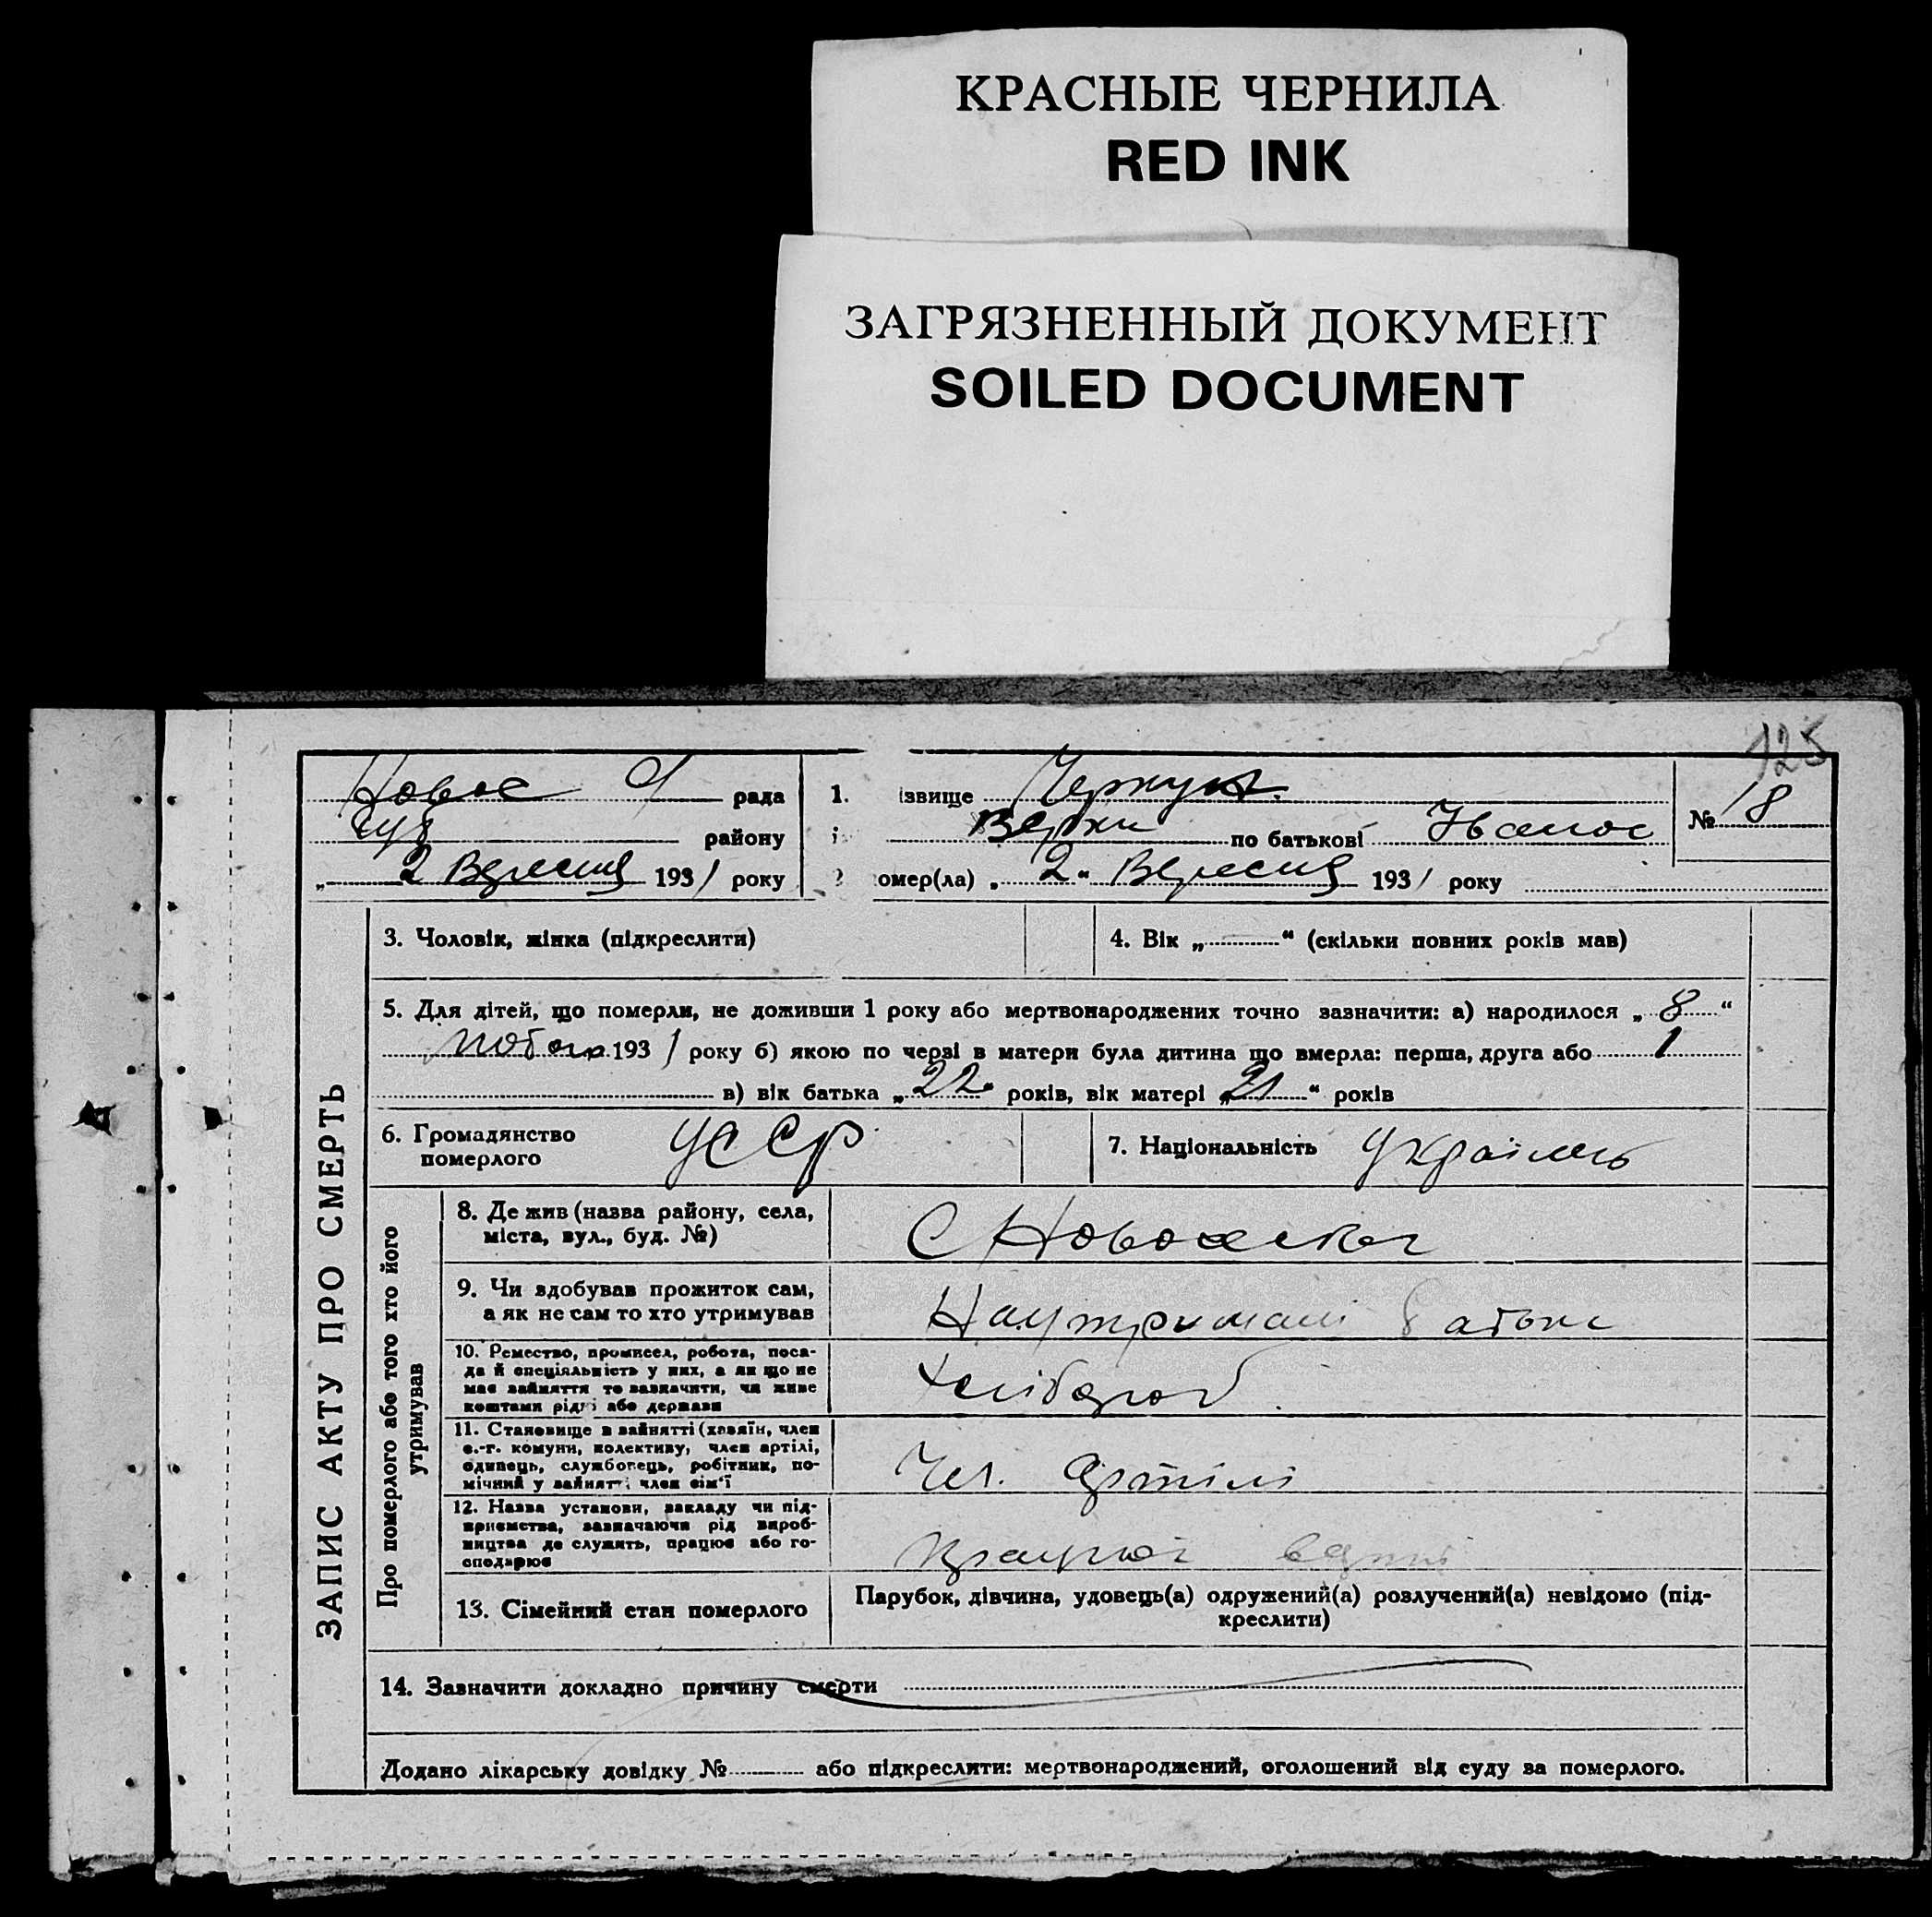 КРАСНЫЕ ЧЕРНИЛА
RED INK
ЗАГРЯЗНЕННЫЙ ДОКУМЕНТ
SOILED DOCUMENT
125
рада
району
„ 2 Вересня 1931 року
1. ізвище
по батькові Іванов
№ 18
омер(ла) „ 2 “ Вересня 1931 року
ЗАПИС АКТУ ПРО СМЕРТЬ
3. Чоловік, жінка (підкреслити)
4. Вік „ “ (скільки повних років мав)
5. Для дітей, що померли, не доживши 1 року або мертвонароджених точно зазначити: а) народилося „ 8 “
1931 року б) якою по черзі в матери була дитина що вмерла: перша, друга або 1
в) вік батька „ 22 “ років, вік матері „ 21 “ років
6. Громадянство
померлого
УССР
7. Національність
Про померлого або того хто його
утримував
8. Де жив (назва району, села,
міста, вул., буд. №)
9. Чи здобував прожиток сам,
а як не сам то хто утримував
10. Ремество, промисел, робота, поса-
да й спеціяльність у них, а як що не
має зайняття то зазначити, чи живе
коштами рідні або держави
Хлібороб
11. Становище в зайнятті (хазяїн, член
с.-г. комуни, колективу, член артілі,
одинець, службовець, робітник, по-
мічний у зайнятті член сім'ї
Чл. Артілі
12. Назва установи, закладу чи під-
приємства, зазначаючи рід вироб-
ництва де служить, працює або го-
сподарює
13. Сімейний стан померлого
Парубок, дівчина, удовець(а) одружений(а) розлучений(а) невідомо (під-
креслити)
14. Зазначити докладно причину смерти
Додано лікарську довідку № або підкреслити: мертвонароджений, оголошений від суду за померлого.